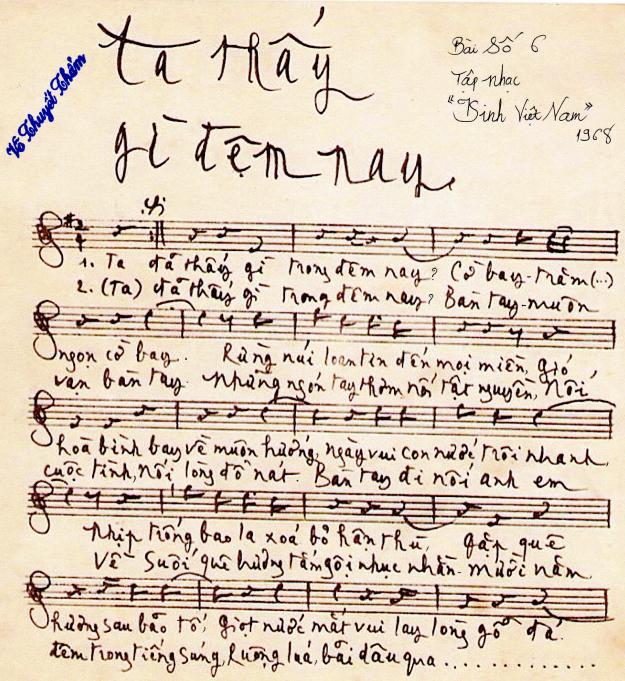 Ta thấy
gì đêm nay.
Bài Số 6
Tập nhạc
"Kinh Việt Nam"
1968
Võ Thuyết Thẩm
1. Ta đã thấy gì trong đêm nay? Cờ bay - trăm (...)
2. (Ta) đã thấy gì trong đêm nay? Bàn tay - muôn
ngọn cờ bay. Rừng núi loan tin đến mọi miền, gió
vạn bàn tay. Những ngón tay thơm nối tật nguyền, Nối
hoà bình bay về muôn hướng, ngày vui con nước trôi nhanh,
cuộc tình, nối lòng đổ nát. Bàn tay đi nối anh em
nhịp trống bao la xoá bỏ hận thù, gặp quê
Về suối quê hương tắm gội nhục nhằn. mười năm,
hương sau bão tố, giọt nước mắt vui lay lòng gỗ đá.
đêm trong tiếng súng, Ruộng lúa, bãi dâu qua ..............